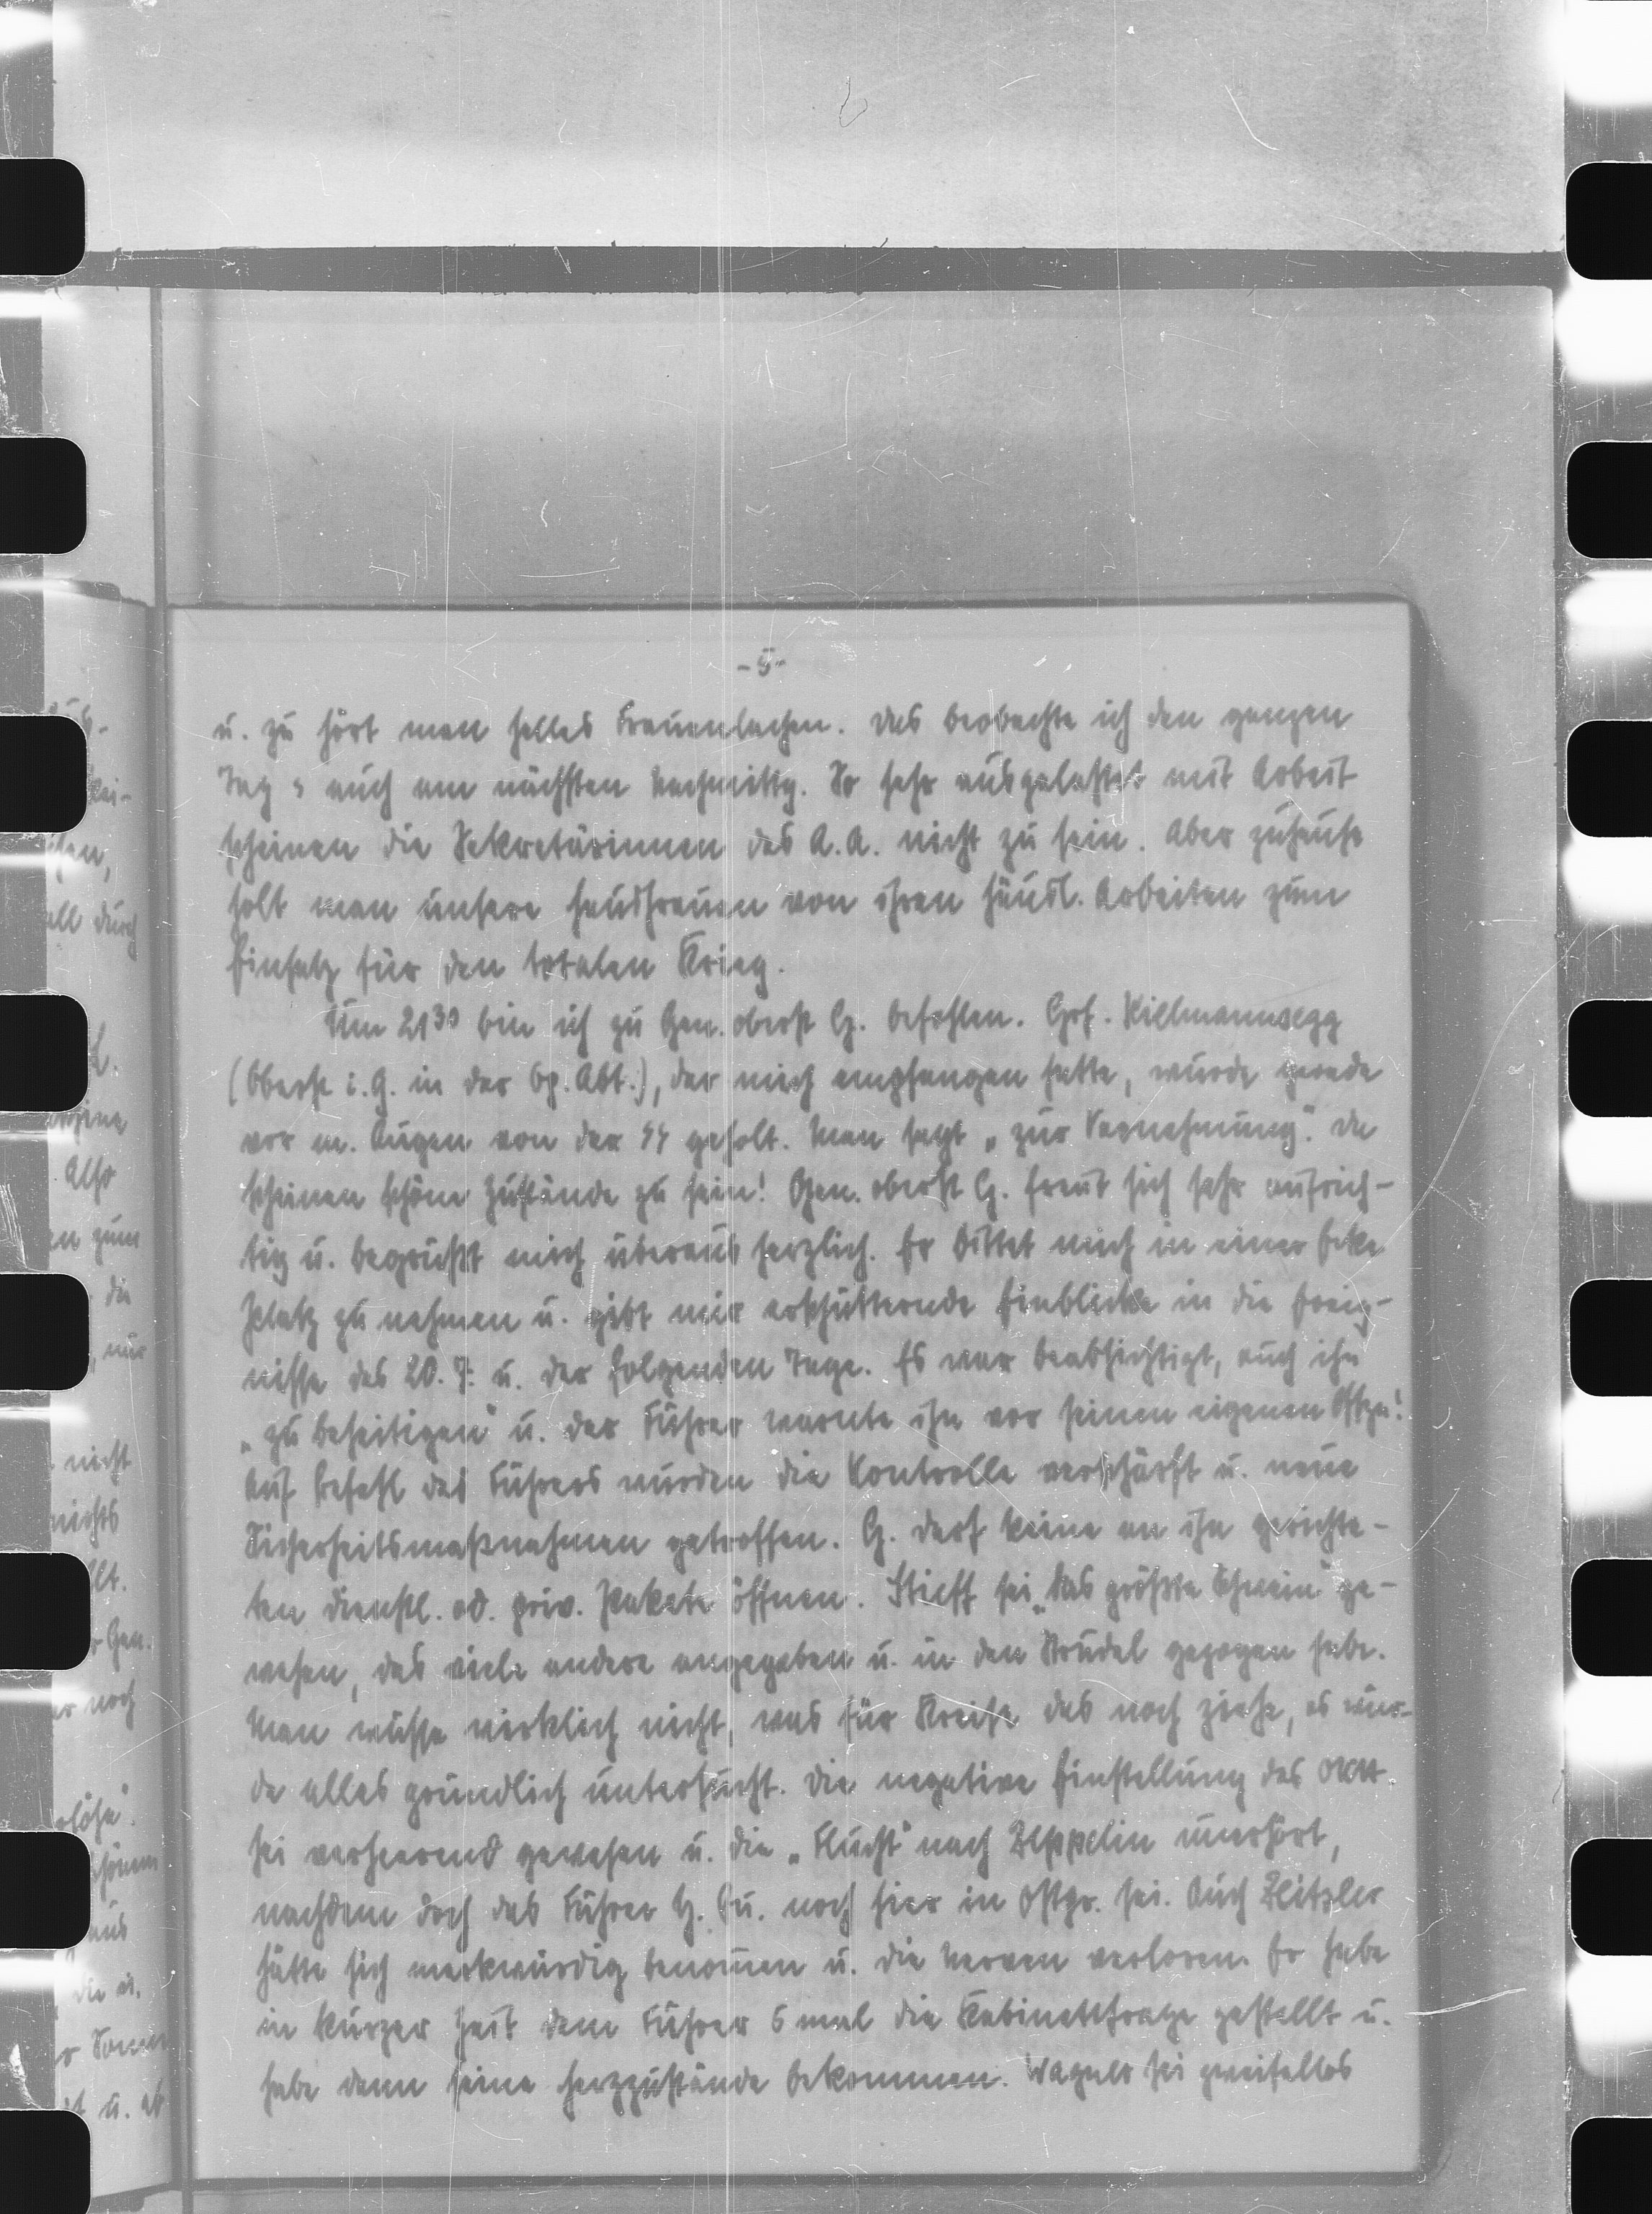 - 5 -
u. zu hört man helles Frauenlachen. Das beobachte ich den ganzen
Tag u. auch am nächsten Nachmittg. So sehr ausgelastet mit Arbeit
scheinen die Sekretärinnen des A.A. nicht zu sein. Aber zuhause
holt man unsere Hausfrauen von ihren häusl. Arbeiten zum
Einsatz für den totalen Krieg.
Um 21³⁰ bin ich zu Gen. oberst G. befohlen. Grf. Kielmannsegg
(Oberst i. G. in der Op. Abt.), der mich empfangen hatte, wurde gerade
vor m. Augen von der SS geholt. Man sagt „zur Vernehmung". Da
scheinen schöne Zustände zu sein! Gen. oberst G. freut sich sehr aufrich-
tig u. begrüßt mich überaus herzlich. Er bittet mich in einer Ecke
Platz zu nehmen u. gibt mir erschütternde Einblicke in die Ereig-
nisse des 20. 7. u. der folgenden Tage. Es war beabsichtigt, auch ihn
„zu beseitigen" u. der Führer warnte ihn vor seinen eigenen Offzn!
Auf Befehl des Führers wurden die Kontrolle verschärft u. neue
Sicherheitsmaßnahmen getroffen. G. darf keine an ihn gerichte-
ten dienstl. od. priv. Pakete öffnen. Stieff sei „das größte Schwein" ge-
wesen, das viele andere angegeben u. in den Strudel gezogen habe.
Man wüsste wirklich nicht, was für Kreise das noch ziehe, es wür-
de alles gründlich untersucht. Die negative Einstellung des OKH.
sei verheerend gewesen u. die „Flucht" nach Zeppelin unerhört,
nachdem doch das Führer H. Qu. noch hier in Ostpr. sei. Auch Zeitzler
hätte sich merkwürdig benom̅en u. die Nerven verloren. Er habe
in kurzer Zeit dem Führer 5 mal die Kabinettsfrage gestellt u.
habe dann seine Herzzustände bekommen. Wagner sei zweifellos